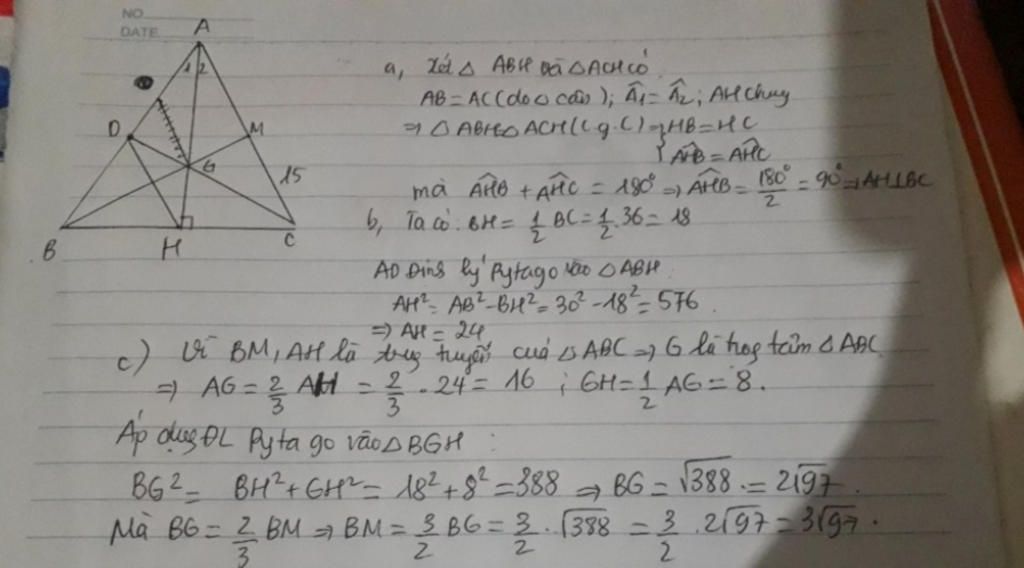 NO
DATE
A
1 2
D
M
G
15
B
H
C
a, Xét △ ABH và △ACH có
AB = AC (do △ cân); Â₁ = Â₂; AH chung
⇒ △ABH=△ACH (c.g.c) ⇒ { HB = HC
AHB = AHC
mà AHB + AHC = 180° ⇒ AHB = 180°/2 = 90° ⇒ AH⊥BC
b, Ta có: BH = 1/2 BC = 1/2 . 36 = 18
AD Định lý Pytago vào △ABH
AH² = AB² - BH² = 30² - 18² = 576
⇒ AH = 24
c) Vì BM, AH là trung tuyến của △ABC ⇒ G là trọng tâm △ABC
⇒ AG = 2/3 AH = 2/3 . 24 = 16 ; GH = 1/2 AG = 8.
Áp dụng ĐL Pytago vào △BGH :
BG² = BH² + GH² = 18² + 8² = 388 ⇒ BG = √388 = 2√97.
Mà BG = 2/3 BM ⇒ BM = 3/2 BG = 3/2 . √388 = 3/2 . 2√97 = 3√97.